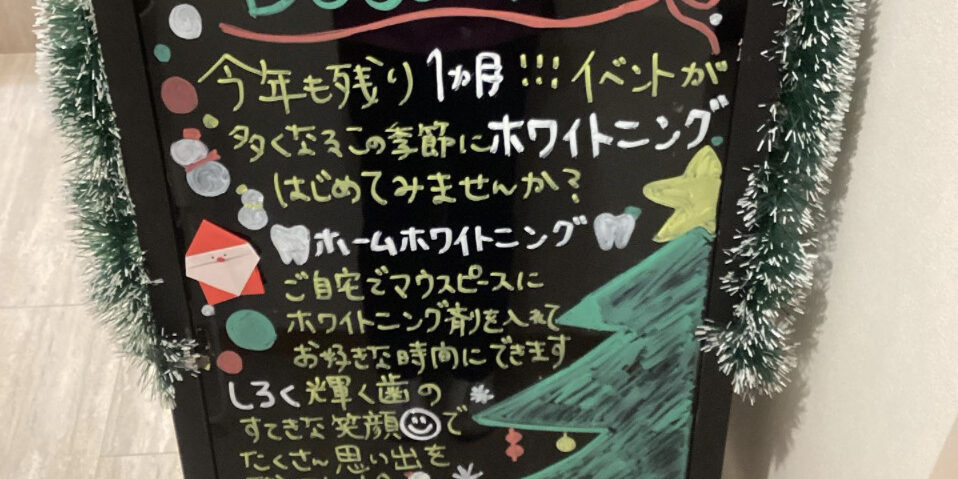 今年も残り1ヵ月!!!イベントが
多くなるこの季節にホワイトニング
はじめてみませんか?
ホームホワイトニング
ご自宅でマウスピースに
ホワイトニング剤を入れて
お好きな時間にできます
しろく輝く歯の
すてきな笑顔で
たくさん思い出を